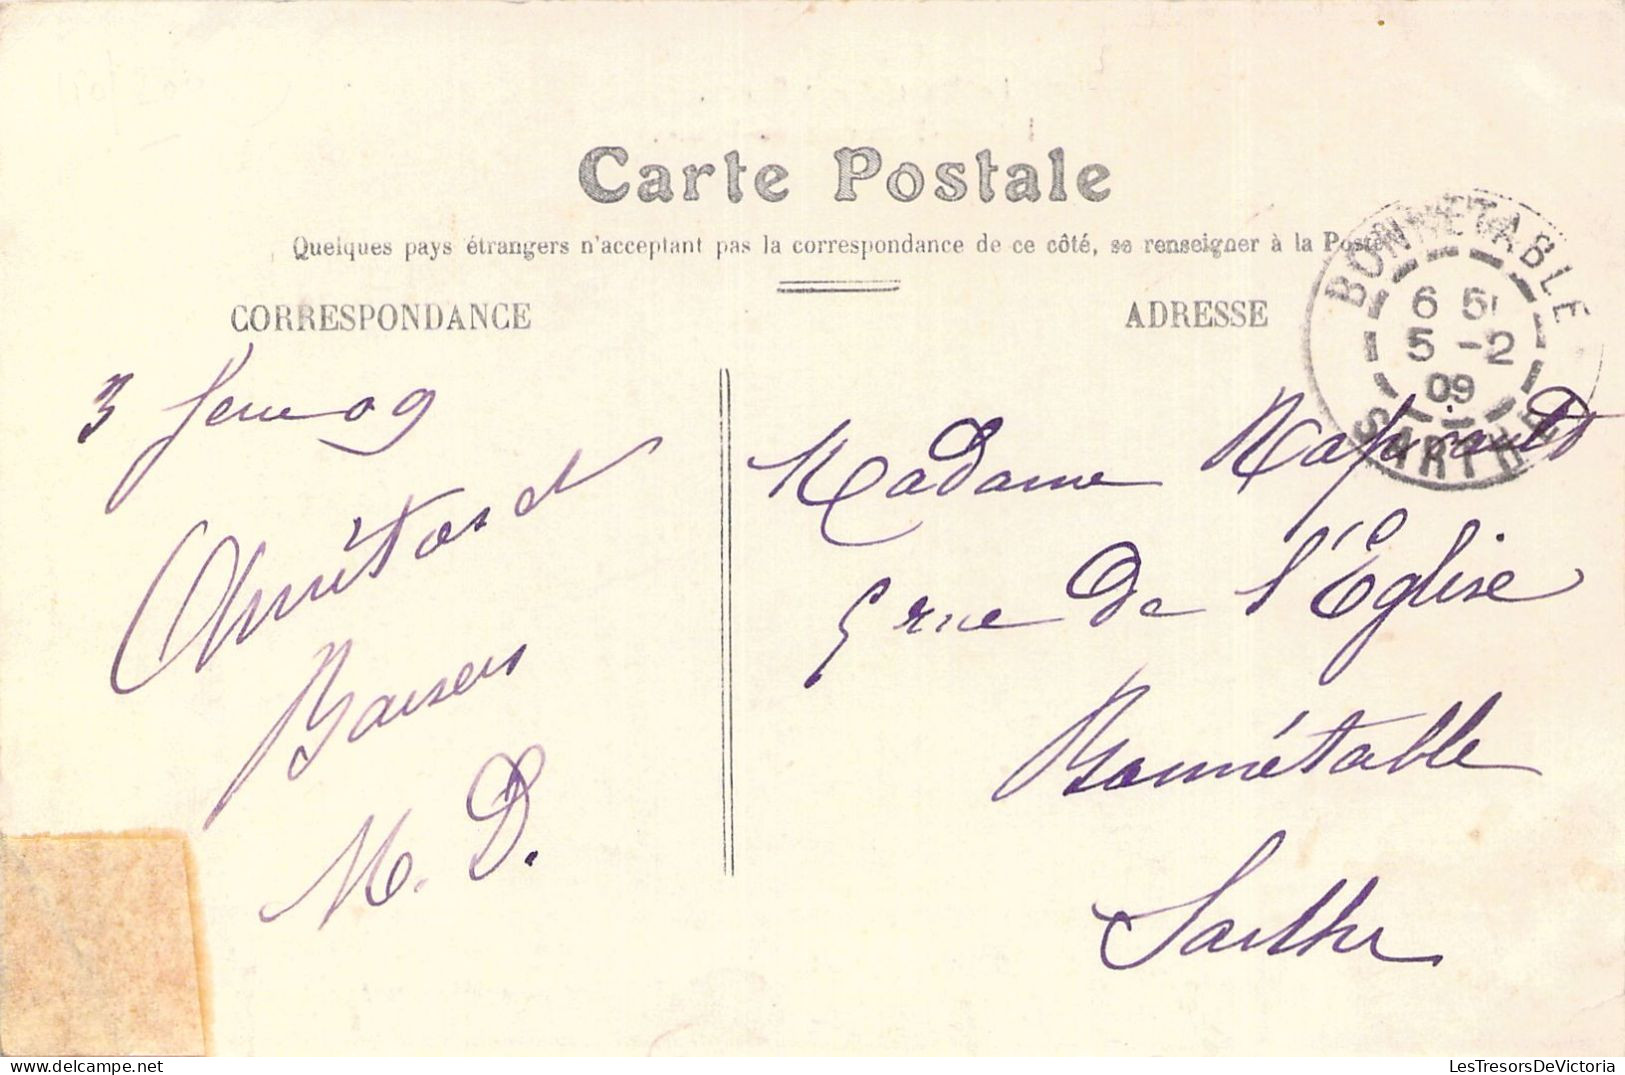 Carte Postale
Quelques pays étrangers n'acceptent pas la correspondance de ce côté, se renseigner à la Poste
CORRESPONDANCE
ADRESSE
BONNETABLE
6 51
5 -2
09
SARTHE
3 fevr 09
Amitos et
Baisers
M. D.
Madame
5 rue de l'Église
Bonnétable
Sarthe
LesTresorsDeVictoria